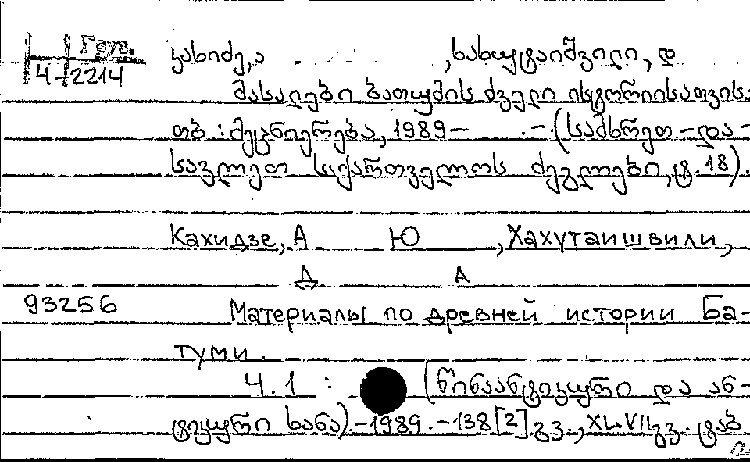 Груз.
4-2214
კახიძე, ა , ხახუტაიშვილი, დ
მასალები ბათუმის ძველი ისტორიისათვის.
თბ.: მეცნიერება, 1989- . -(სამხრეთ-და-
სავლეთ საქართველოს ძეგლები, ტ. 18).
Кахидзе, А Ю , Хахутаишвили,
Д А
93256 Материалы по древней истории Ба-
туми.
Ч. 1 : (წინაანტიკური და ან-
ტიკური ხანა).-1989.-138[2]გვ., XLVIIგვ. ტაბ